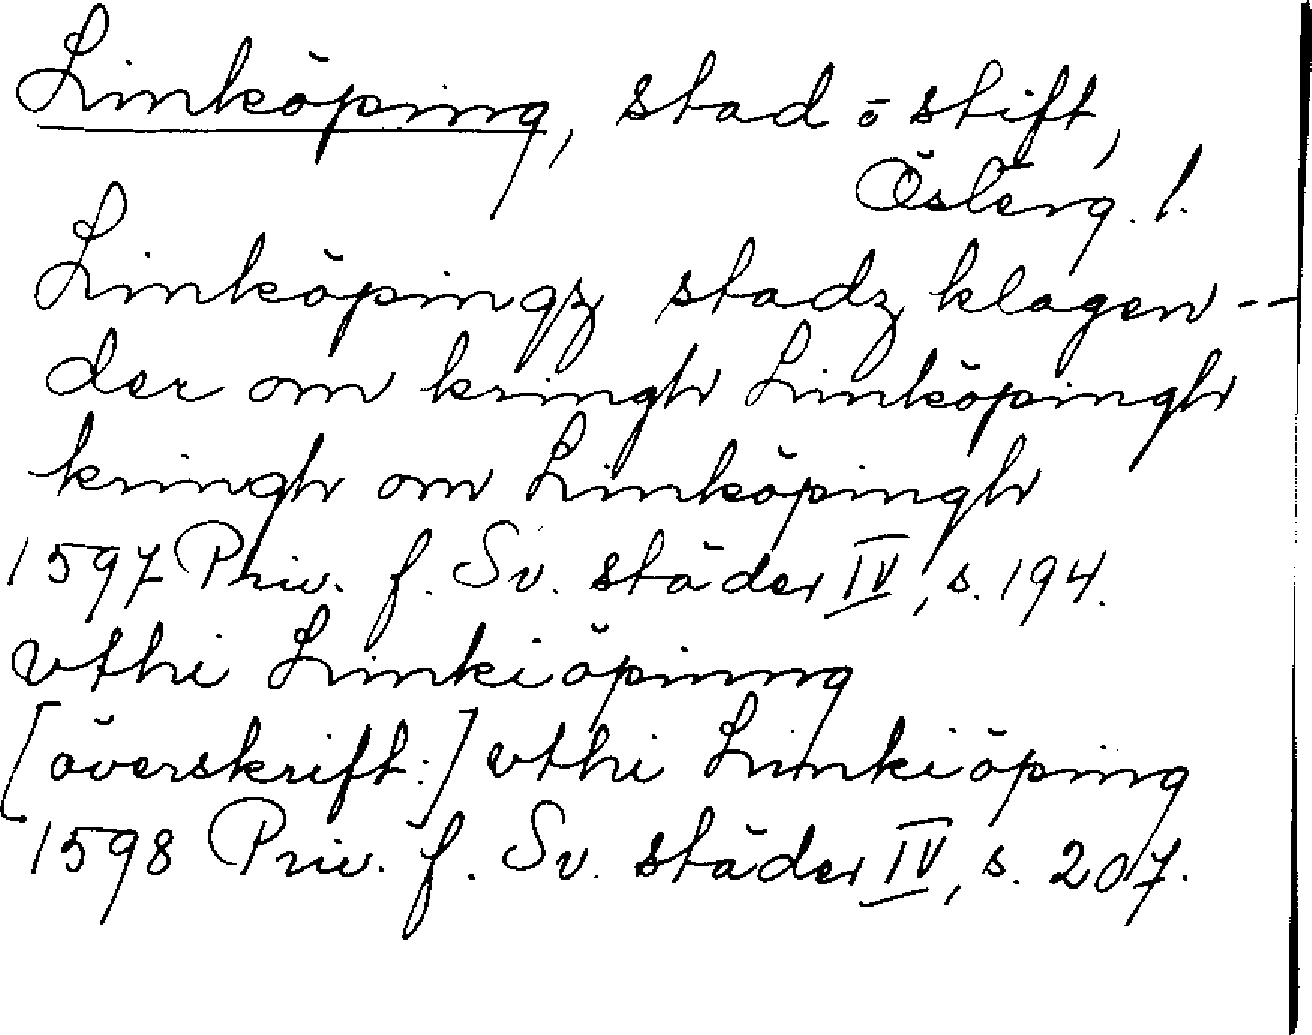 Linköping, stad o stift,
Österg. l.
Linköpingz stadz klagen --
der om kringh Linköpingh
kringh om Linköpingh
1597 Priv. f. Sv. städer IV, s. 194.
vthi Linkiöpinng
[överskrift:] vthi Linkiöping
1598 Priv. f. Sv. städer IV, s. 207.